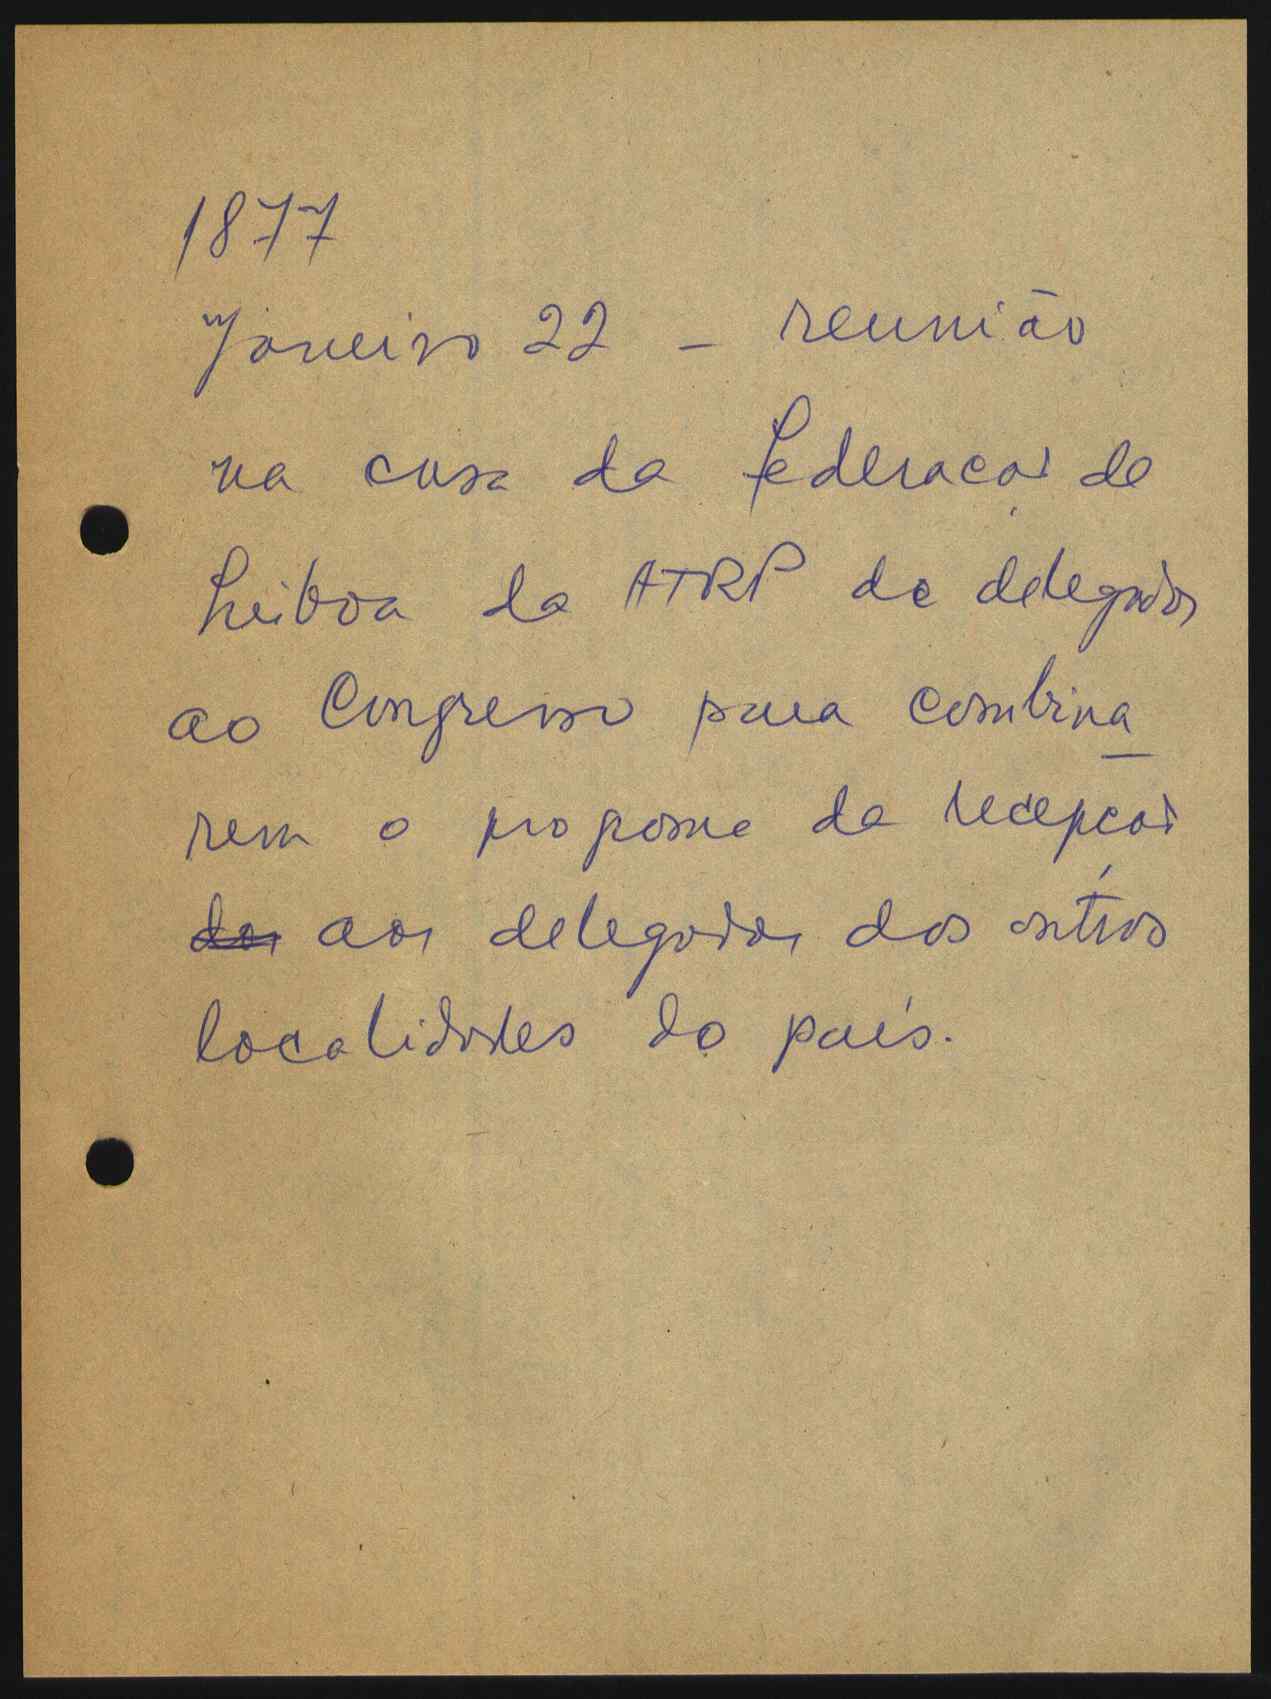 1877
Janeiro 22 - reunião
na casa da Federação de
Lisboa da ATRP de delegados
ao Congresso para combina
rem o programa da recepção
dos aos delegados dos outros
localidades do país.